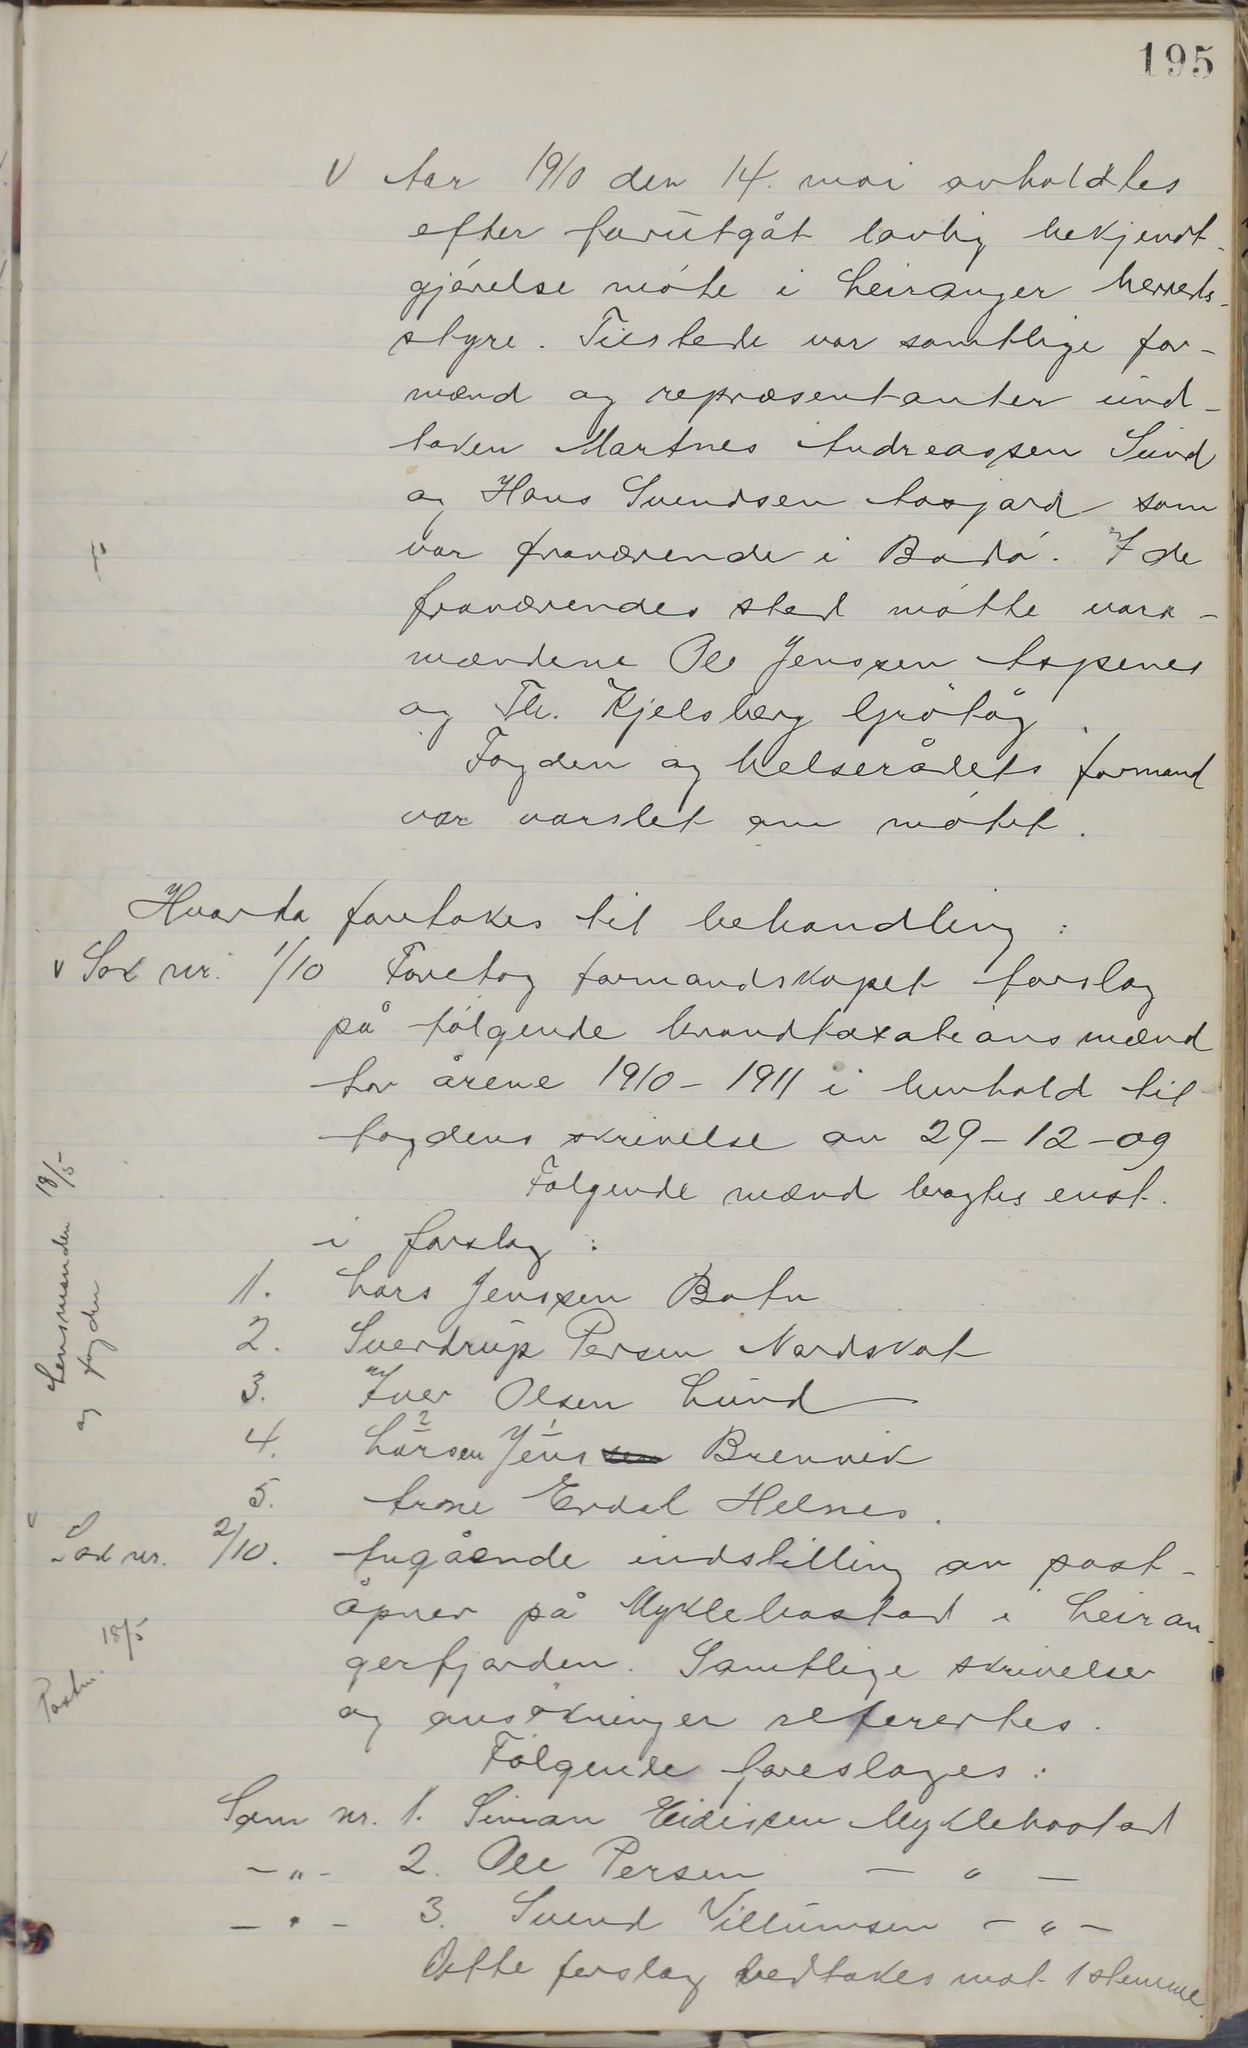 195
v Aar 1910 den 14. mai avholdtes
efter forutgåt lovlig bekjendt-
gjørelse møte i Leiranger herreds-
styre. Tilstede var samtlige for-
mænd og repræsentanter und-
taken Martnes Andreassen Sund
og Hans Svendsen Aasjord som
var fraværende i Bodø. I de
fraværendes sted møtte vara-
mændene Ole Jenssen Aspenes
og Th. Kjelsberg Grøtøy.
Fogden og helserådets formand
var varslet om møtet.
Hvorda foretokes til behandling:
v Sak nr. 1/10 Foretog formandskapet forslag
på følgende brandtaxations mænd
for årene 1910-1911 i henhold til
fogdens skrivelse av 29-12-09
Følgende mænd bragtes enst.
i forslag:
1. Lars Jenssen Botn
2. Sverdrup Persen Nordskot
3. Iver Olsen Lund
4. Larsen 2 Jens 1 sen Brennvik
5. Arne Erdal Helnes.
Lensmanden 18/5
og fogden
v Sak nr. 2/10. Angående indstilling av post-
åpner på Myklebostad i Leiran-
gerfjorden. Samtlige skrivelser
og ansøkninger refertes.
Postm. 18/5
Følgende foreslages:
Som nr. 1. Simon Eidissen Myklebostad
-"- 2. Ole Persen - " -
-"- 3. Svend Villumsen - " -
Dette forslag vedtakes mot 1 stemme.